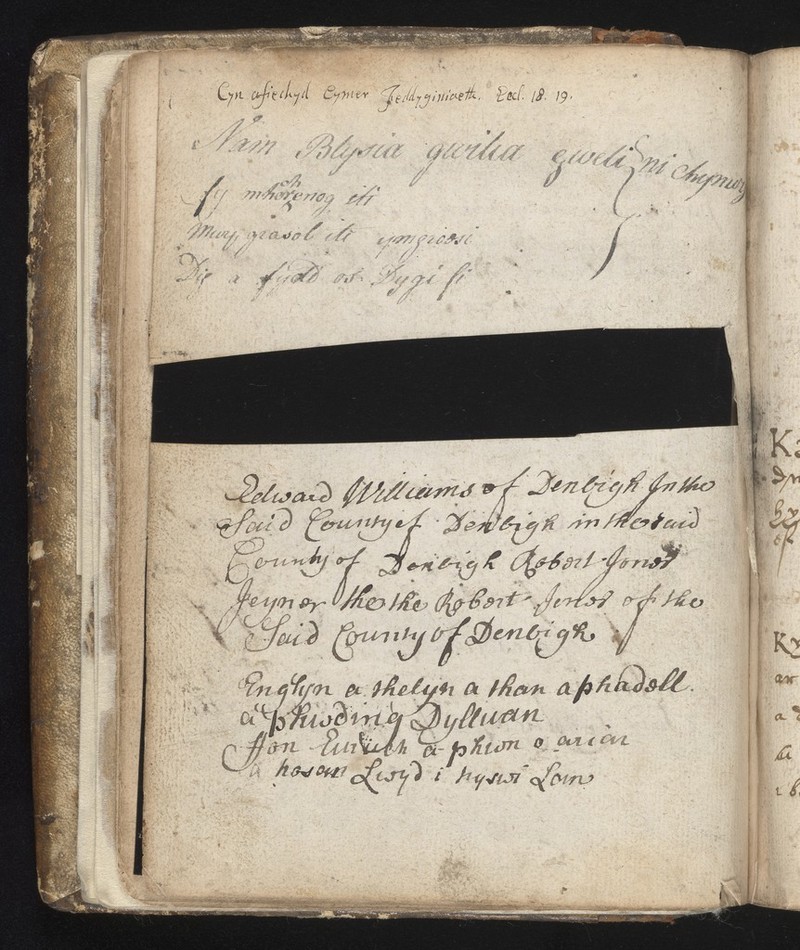 Cyn afiechyd Cymer Feddyginiaeth. Eccl. 18. 19.
Nain Blysia gwilia gweli ni chymwy
fy mhorchenog iti
Mwy grasol iti ymgroesi
Dig a fydd os Dygi fi
Edward Williams of Denbigh In the
Said County of Denbigh in the said
County of Denbigh Robert Jones
Jeyner the the Robert Jones of the
Said County of Denbigh
Englyn a thelyn a than a phadell.
a phwding Dylluan
Ffon a phwn o arian
a hosan Lwyd i Lan
K
K
ar
a